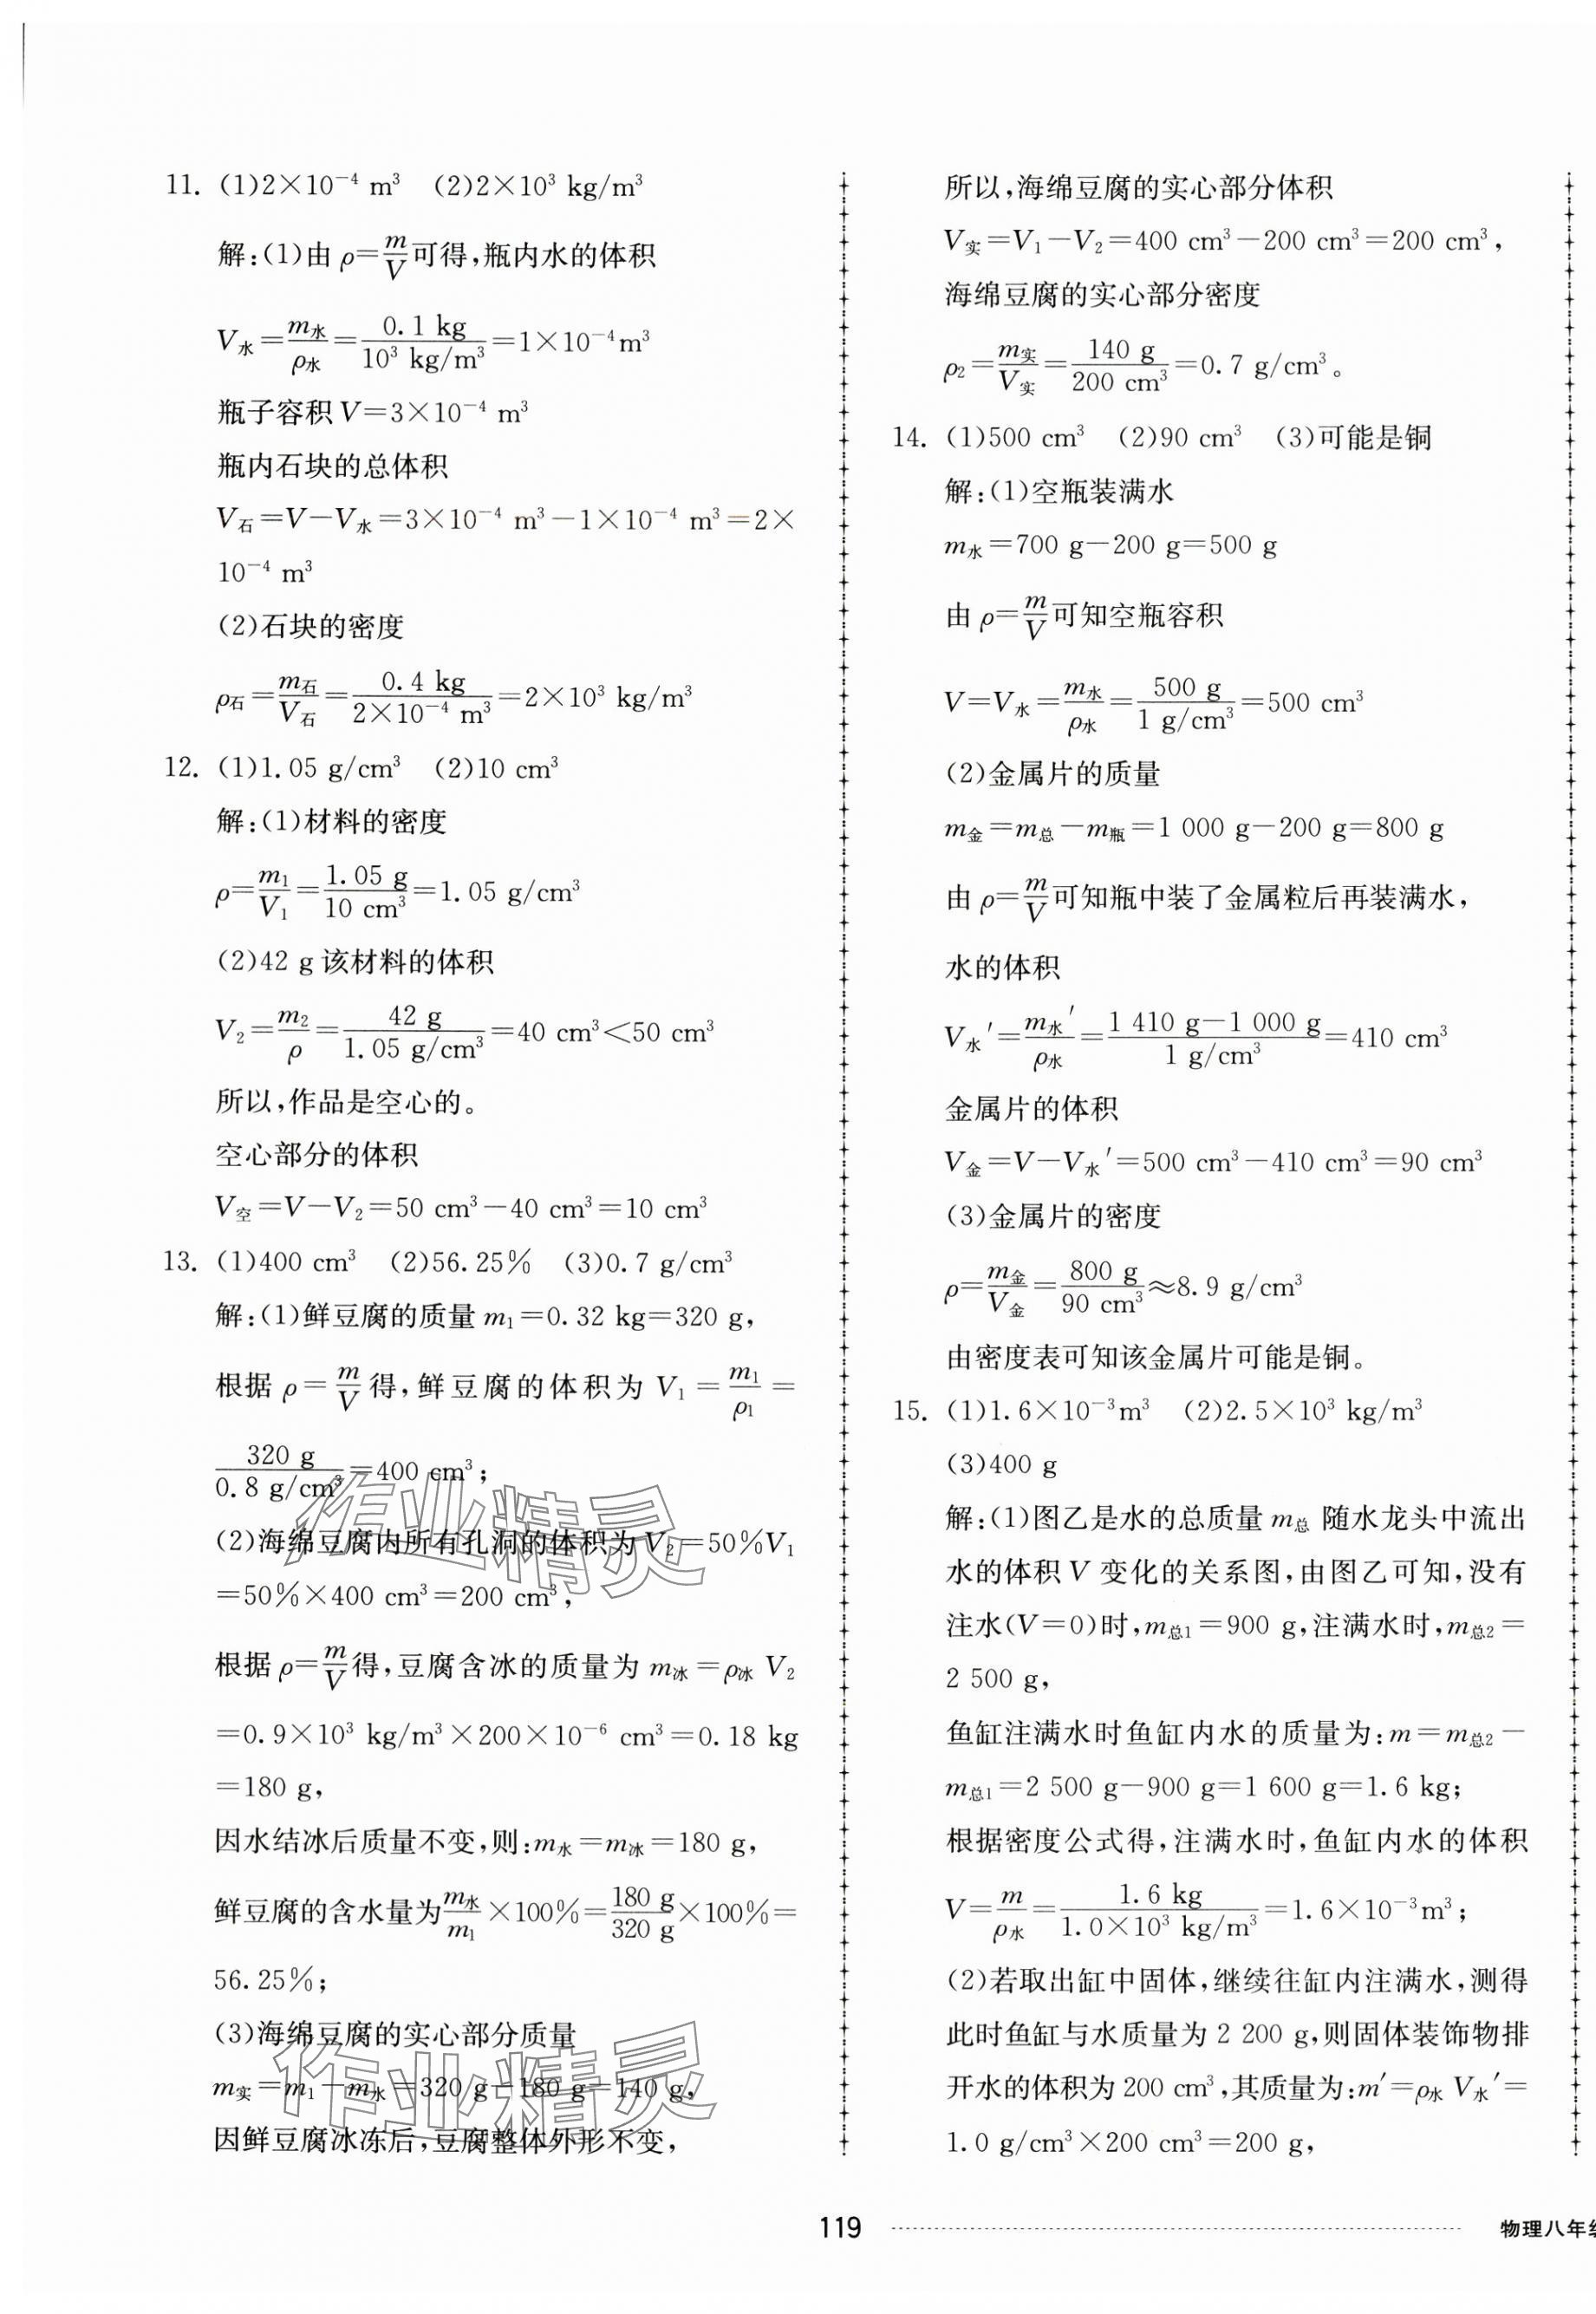 11. (1)2×10⁻⁴ m³ (2)2×10³ kg/m³
解:(1)由 ρ=m/V可得,瓶内水的体积
V水=m水/ρ水=0.1 kg/10³ kg/m³=1×10⁻⁴m³
瓶子容积V=3×10⁻⁴ m³
瓶内石块的总体积
V石=V-V水=3×10⁻⁴ m³-1×10⁻⁴ m³=2×
10⁻⁴ m³
(2)石块的密度
ρ石=m石/V石=0.4 kg/2×10⁻⁴ m³=2×10³ kg/m³
12. (1)1.05 g/cm³ (2)10 cm³
解:(1)材料的密度
ρ=m₁/V₁=1.05 g/10 cm³=1.05 g/cm³
(2)42 g该材料的体积
V₂=m₂/ρ=42 g/1.05 g/cm³=40 cm³<50 cm³
所以,作品是空心的。
空心部分的体积
V空=V-V₂=50 cm³-40 cm³=10 cm³
13. (1)400 cm³ (2)56.25% (3)0.7 g/cm³
解:(1)鲜豆腐的质量 m₁=0.32 kg=320 g,
根据 ρ=m/V得,鲜豆腐的体积为 V₁=m₁/ρ₁=
320 g/0.8 g/cm³=400 cm³;
(2)海绵豆腐内所有孔洞的体积为V₂=50%V₁
=50%×400 cm³=200 cm³,
根据 ρ=m/V得,豆腐含冰的质量为 m冰=ρ冰 V₂
=0.9×10³ kg/m³×200×10⁻⁶ cm³=0.18 kg
=180 g,
因水结冰后质量不变,则:m水=m冰=180 g,
鲜豆腐的含水量为m水/m₁×100%=180 g/320 g×100%=
56.25%;
(3)海绵豆腐的实心部分质量
m实=m₁-m水=320 g-180 g=140 g,
因鲜豆腐冰冻后,豆腐整体外形不变,
所以,海绵豆腐的实心部分体积
V实=V₁-V₂=400 cm³-200 cm³=200 cm³,
海绵豆腐的实心部分密度
ρ₂=m实/V实=140 g/200 cm³=0.7 g/cm³。
14. (1)500 cm³ (2)90 cm³ (3)可能是铜
解:(1)空瓶装满水
m水=700 g-200 g=500 g
由 ρ=m/V可知空瓶容积
V=V水=m水/ρ水=500 g/1 g/cm³=500 cm³
(2)金属片的质量
m金=m总-m瓶=1 000 g-200 g=800 g
由 ρ=m/V可知瓶中装了金属粒后再装满水,
水的体积
V水′=m水′/ρ水=1 410 g-1 000 g/1 g/cm³=410 cm³
金属片的体积
V金=V-V水′=500 cm³-410 cm³=90 cm³
(3)金属片的密度
ρ=m金/V金=800 g/90 cm³≈8.9 g/cm³
由密度表可知该金属片可能是铜。
15. (1)1.6×10⁻³m³ (2)2.5×10³ kg/m³
(3)400 g
解:(1)图乙是水的总质量 m总 随水龙头中流出
水的体积 V 变化的关系图,由图乙可知,没有
注水(V=0)时,m总1=900 g,注满水时,m总2=
2 500 g,
鱼缸注满水时鱼缸内水的质量为:m=m总2-
m总1=2 500 g-900 g=1 600 g=1.6 kg;
根据密度公式得,注满水时,鱼缸内水的体积
V=m/ρ水=1.6 kg/1.0×10³ kg/m³=1.6×10⁻³m³;
(2)若取出缸中固体,继续往缸内注满水,测得
此时鱼缸与水质量为 2 200 g,则固体装饰物排
开水的体积为 200 cm³,其质量为:m′=ρ水 V水′=
1.0 g/cm³×200 cm³=200 g,
作业精灵
作业精灵
119
物理八年级